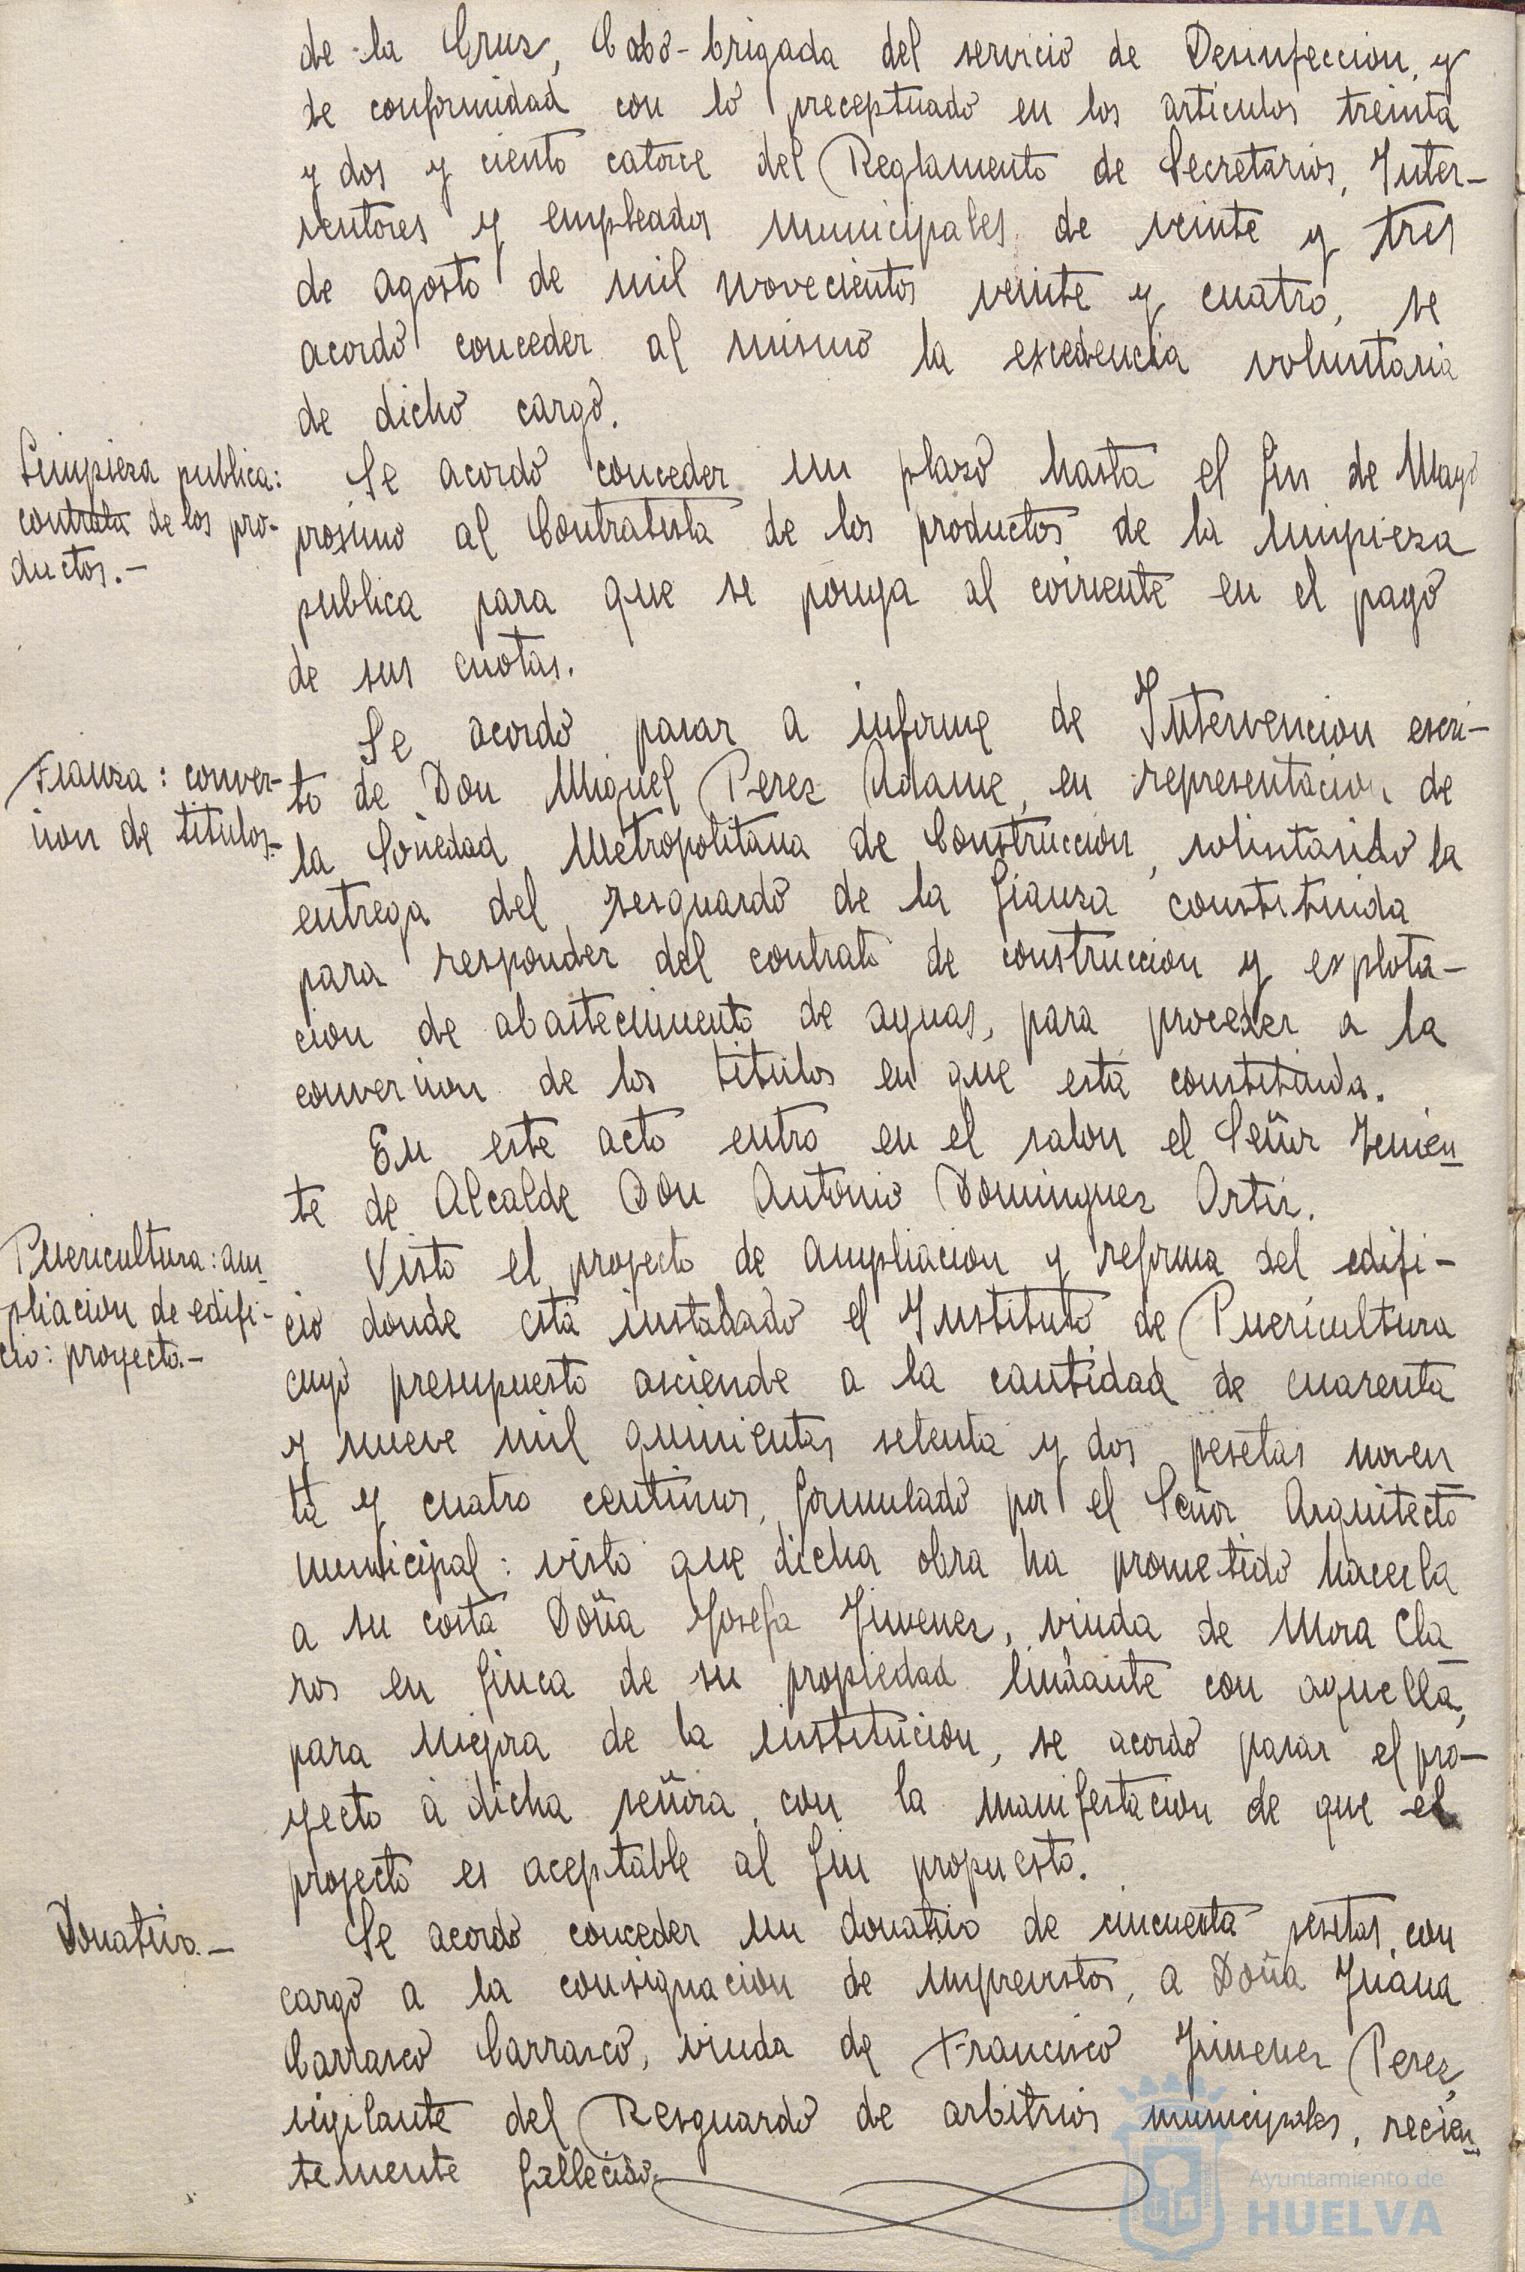 de la Cruz, Cabo-brigada del servicio de Desinfeccion, y
de conformidad con lo preceptuado en los articulos treinta
y dos y ciento catorce del Reglamento de Secretarios, Inter-
ventores y empleados municipales de veinte y tres
de agosto de mil novecientos veinte y cuatro, se
acordó conceder al mismo la excedencia voluntaria
de dicho cargo.
Limpieza publica:
contrata de los pro-
ductos.-
Se acordó conceder un plazo hasta el fin de Mayo
proximo al Contratista de los productos de la limpieza
publica para que se ponga al corriente en el pago
de sus cuotas.
Fianza: conver-
sion de titulos.-
Se acordó pasar a informe de Intervencion escri-
to de Don Miguel Perez Adame, en representacion de
la Sociedad Metropolitana de Construccion, solicitando la
entrega del resguardo de la fianza constituida
para responder del contrato de construccion y explota-
cion de abastecimiento de aguas, para proceder a la
conversion de los titulos en que está constituida.
En este acto entro en el salon el Señor Tenien-
te de Alcalde Don Antonio Dominguez Ortiz.
Puericultura: am-
pliacion de edifi-
cio: proyecto.-
Visto el proyecto de ampliacion y reforma del edifi-
cio donde está instalado el Instituto de Puericultura
cuyo presupuesto asciende a la cantidad de cuarenta
y nueve mil quinientas setenta y dos pesetas noven
ta y cuatro centimos, formulado por el Señor Arquitecto
municipal: visto que dicha obra ha prometido hacerla
a su costa Doña Josefa Jimenez, viuda de Mora Cla
ros en finca de su propiedad lindante con aquella,
para mejora de la institucion, se acordó pasar el pro-
yecto á dicha señora, con la manifestacion de que el
proyecto es aceptable al fin propuesto.
Donativo.-
Se acordó conceder un donativo de cincuenta pesetas, con
cargo a la consignacion de imprevistos, a Doña Juana
Carrasco Carrasco, viuda de Francisco Jimenez Perez,
vigilante del Resguardo de arbitrios municipales, recien-
temente fallecido.
Ayuntamiento de
HUELVA